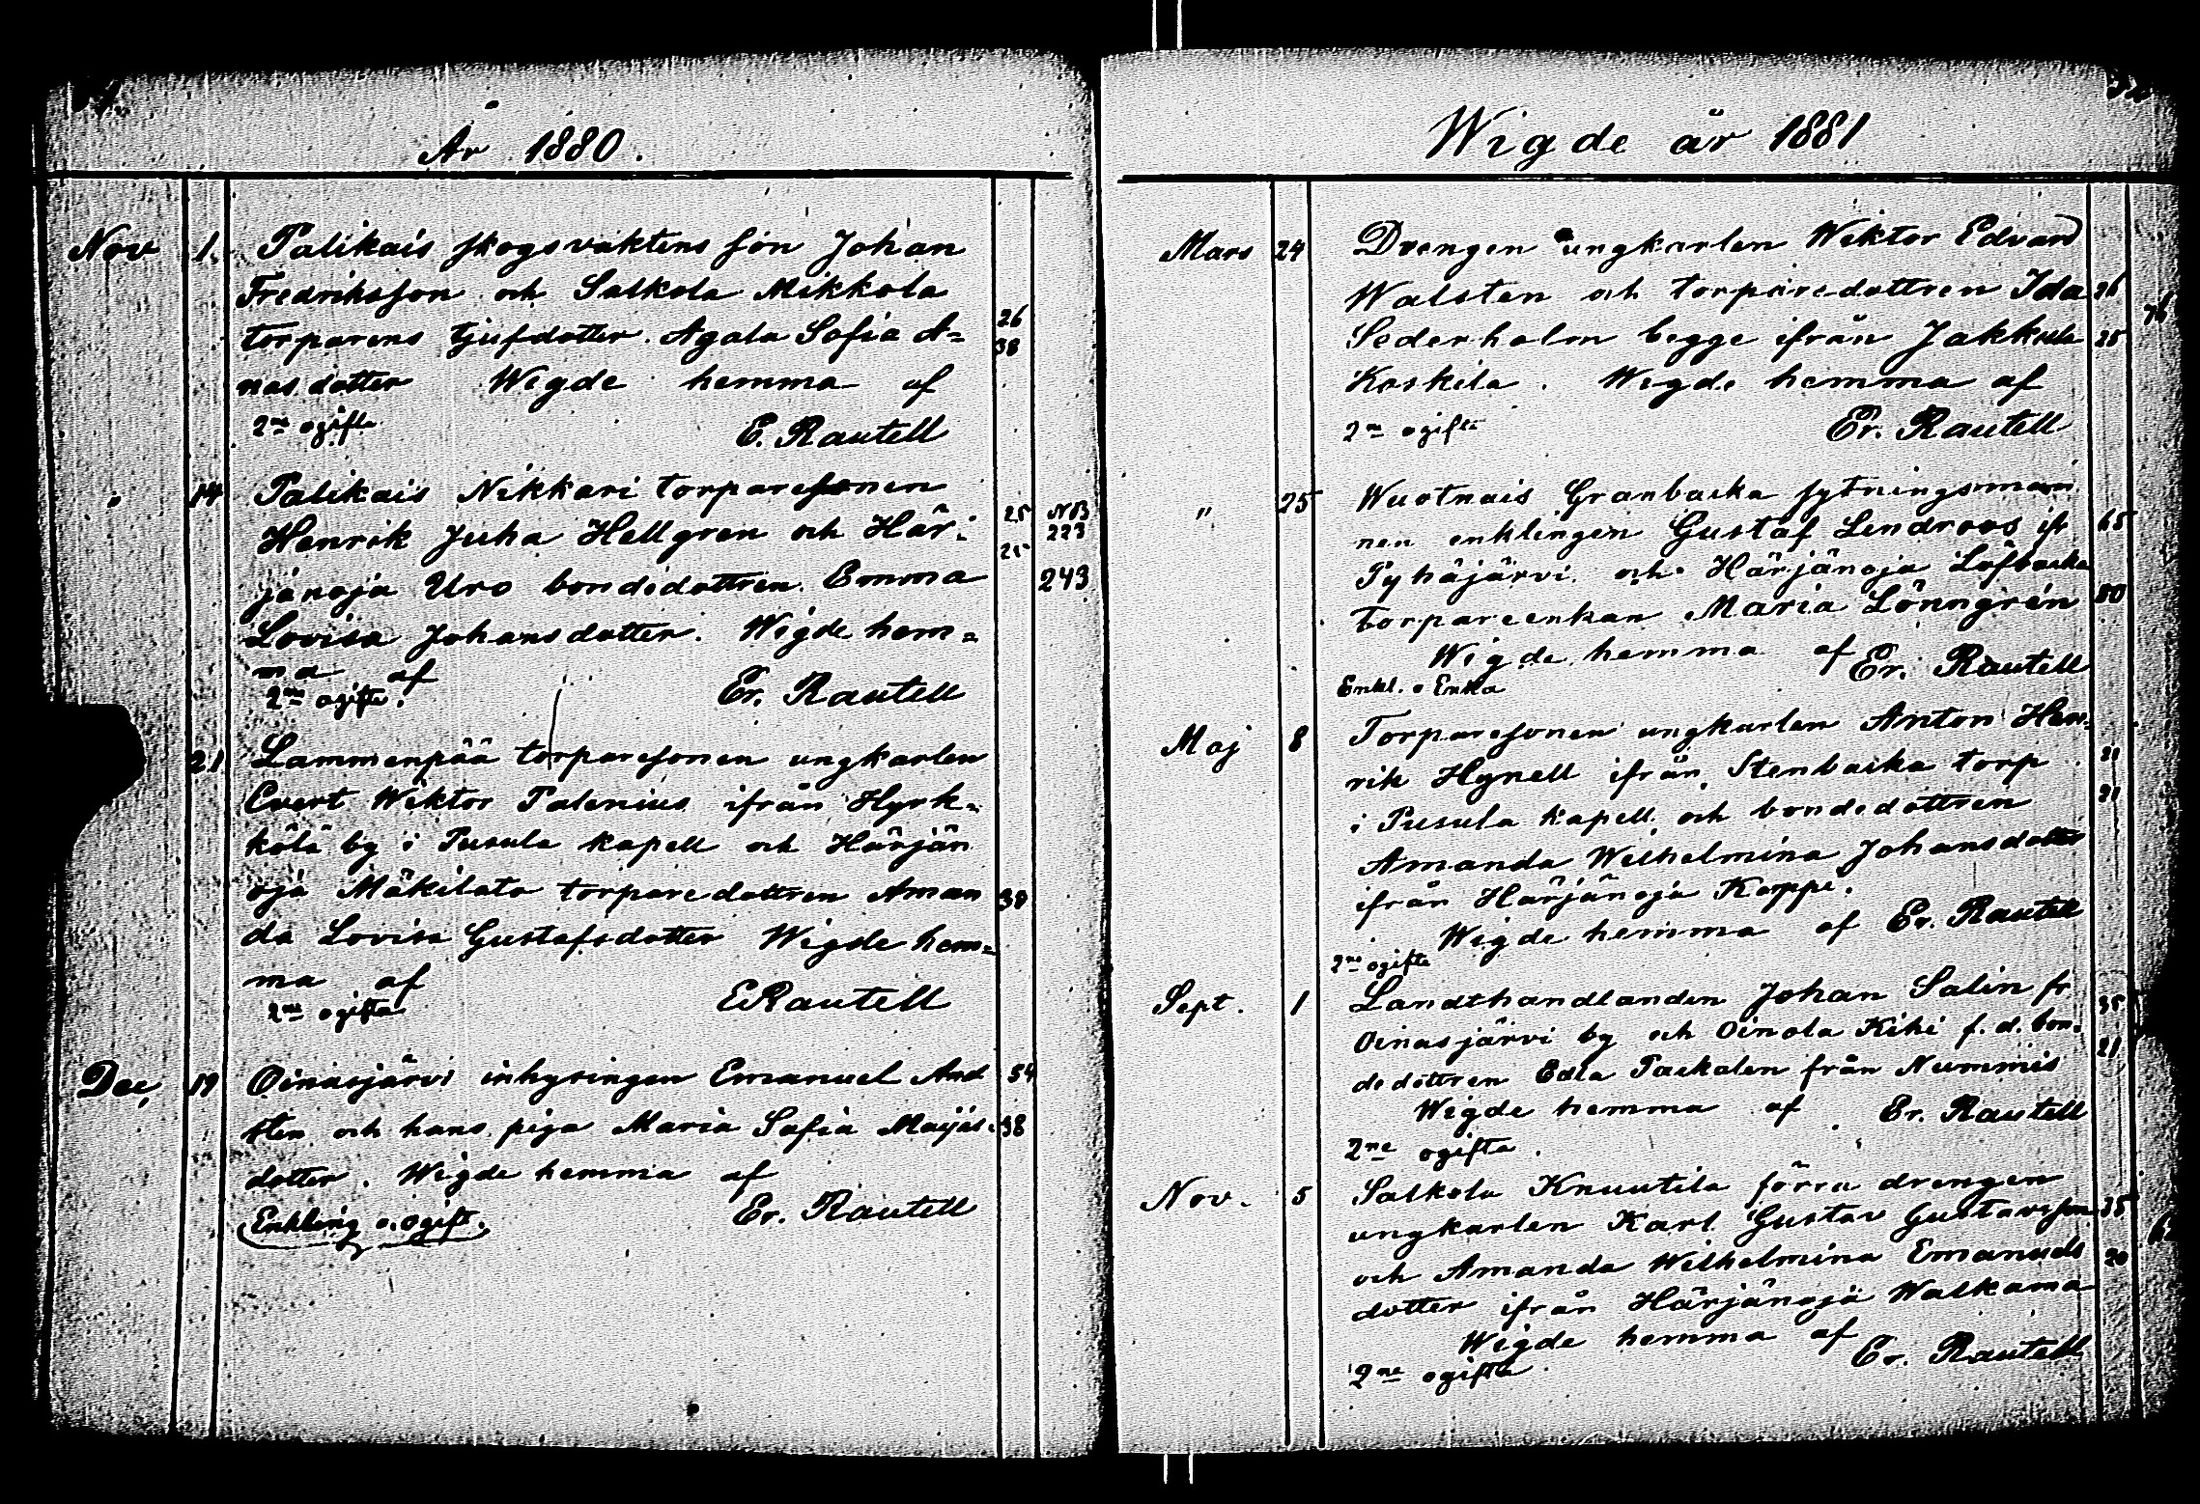 År 1880.
Nov 1. Palikais skogsvaktens son Johan
Fredriksson och Salkola Mikkola
torparens tjufdotter Agata Sofia A= 26
nasdotter Wigde hemma af 38
2ne ogifta
E. Rautell
" 14 Palikais Nikkari torparesonen
Henrik Juha Hellgren och Här= 25 NB 223
jänoja Uro bondedottren Emma 25 243
Lovisa Johansdotter. Wigde hem=
ma af
2ne ogifta. Er. Rautell
21 Lammenpää torparesonen ungkarlen
Evert Wiktor Palenius ifrån Hyrk=
kölä by i Pusula kapell och Härjän
oja Mäkilato torparedottren Aman 38
da Lovisa Gustafsdotter Wigde hem=
ma af
2ne ogifta E Rautell
Dec, 19 Oinasjärvi inhysingen Emanuel And 54
sten och hans piga Maria Sofia 38
dotter. Wigde hemma af
Enkling o. ogift. Er. Rautell
Wigde år 1881
Mars 24 Drengen ungkarlen Wiktor Edvard
Walsten och torparedottren Ida 26 76
Sederholm begge ifrån Jakkula 25
Koskila. Wigde hemma af
2ne ogifta Er. Rautell
" 25 Wuotnais Granbacka sytningsman
nen enklingen Gustaf Lendroos ifr 65
Pyhäjärvi och Härjänoja Löfbacka
torpareenkan Maria Lönngrén 50
Wigde hemma af
Enkl. o Enka Er. Rautell
Maj 8 Torparesonen ungkarlen Anton Hen=
rik Hynell ifrån Stenbacka torp 21
i Pusula kapell och bondedottren 21
Amanda Wilhelmina Johansdotter
ifrån Härjänoja Koppe.
Wigde hemma af Er. Rautell
2ne ogifta
Sept. 1 Landthandlanden Johan Salin fr 35
Oinasjärvi by och Oinola Kihi f. d. bon= 21
dedottren Edla Packalen från Nummis
Wigde hemma af Er. Rautell
2ne ogifta.
Nov. 5 Salkola Knuutila förra drengen
ungkarlen Karl Gustav Gustavsson 35
och Amanda Wilhelmina Emanuels 20
dotter ifrån Härjänoja Walkama
Wigde hemma af
2ne ogifta. Er. Rautell